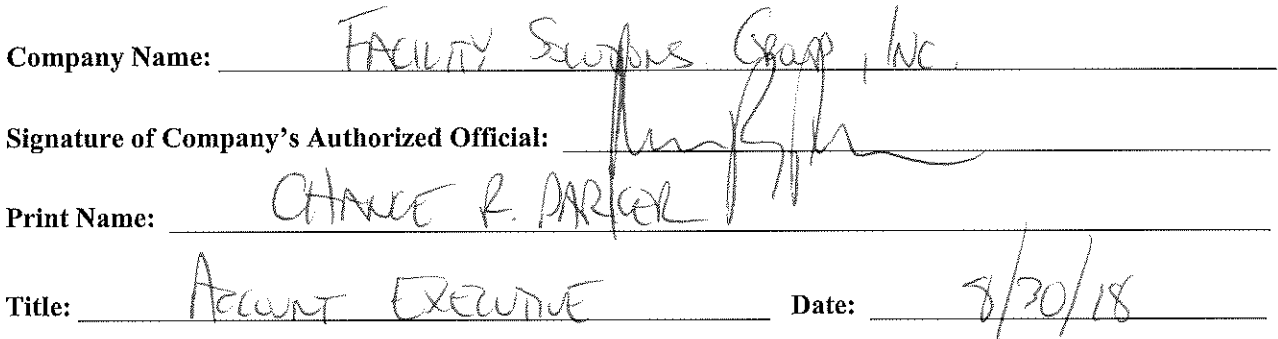 Company Name: FACILITY SOLUTIONS GROUP, INC.
Signature of Company's Authorized Official:
Print Name: CHANCE R. PARKER
Title: ACCOUNT EXECUTIVE Date: 8/30/18